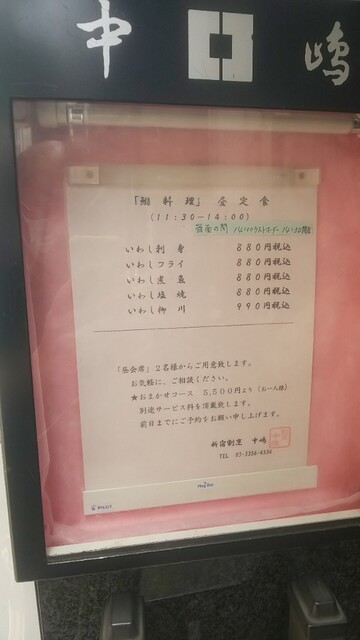 中 嶋
「鰯料理」昼定食
(11:30-14:00)
当面の間 14:00ラストオーダー 14:30閉店
いわし刺身 880円税込
いわしフライ 880円税込
いわし煮魚 880円税込
いわし塩焼 880円税込
いわし柳川 990円税込
「昼会席」2名様からご用意致します。
お気軽に、ご相談ください。
★おまかせコース 5,500円より(お一人様)
別途サービス料を頂戴致します。
前日までにご予約をお願い申し上げます。
新宿割烹 中嶋
TEL 03-3356-4534
PILOT